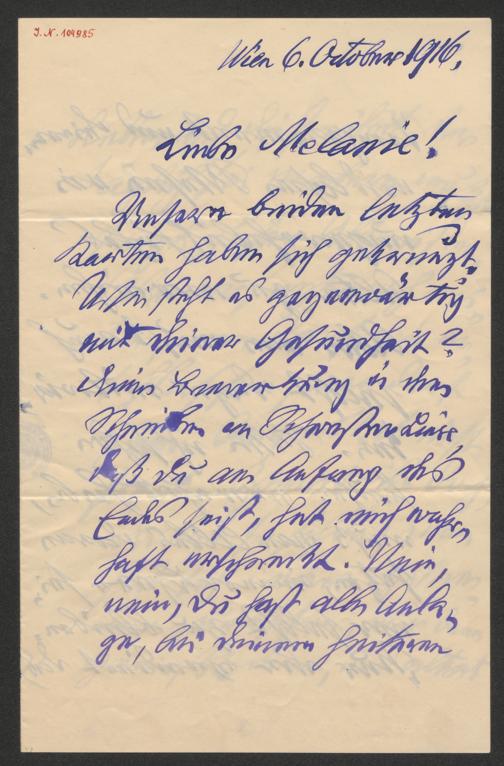 I.N. 104985
Wien 6. October 1916.
Liebe Melanie!
Unsere beiden letzten
Karten haben sich gekreuzt.
Wie steht es gegenwärtig
mit deiner Gesundheit?
Deine Bemerkung in dem
Schreiben an Schwester
daß du am Anfang des
Endes seist, hat mich wahr-
haft erschreckt. Nein,
nein, du hast alle Anla-
ge, bei deinem heiteren